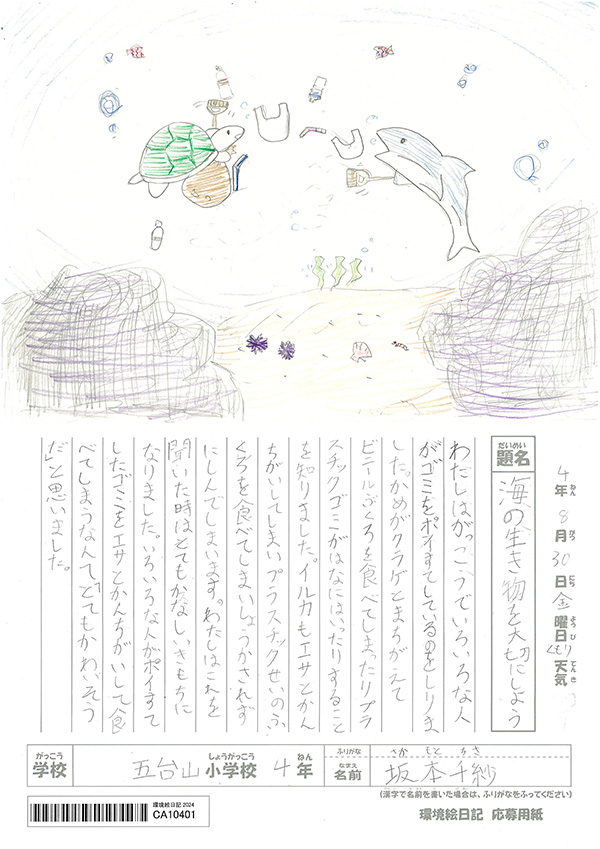 ねん がつ にち ようび てんき
4年8月30日金曜日くもり天気
だいめい
題名
海の生き物を大切にしよう
わたしはがっこうでいろいろな人
がゴミをポイすてしているのをしりま
した。かめがクラゲとまちがえて
ビニールぶくろを食べてしまったりプラ
スチックゴミがはなにはいったりすること
を知りました。イルカもエサとかん
ちがいしてしまいプラスチックせいのふ
くろを食べてしまいしょうかされず
にしんでしまいます。わたしはこれを
聞いた時はとてもかなしいきもちに
なりました。いろいろな人がポイすて
したゴミをエサとかんちがいして食
べてしまうなんて「とてもかわいそう
だ」と思いました。
がっこう しょうがっこう ねん
学校 五台山 小学校 4年
ふりがな さか もと ちさ
なまえ
名前 坂本千紗
(漢字で名前を書いた場合は、ふりがなをふってください)
環境絵日記 2024
CA10401
環境絵日記 応募用紙